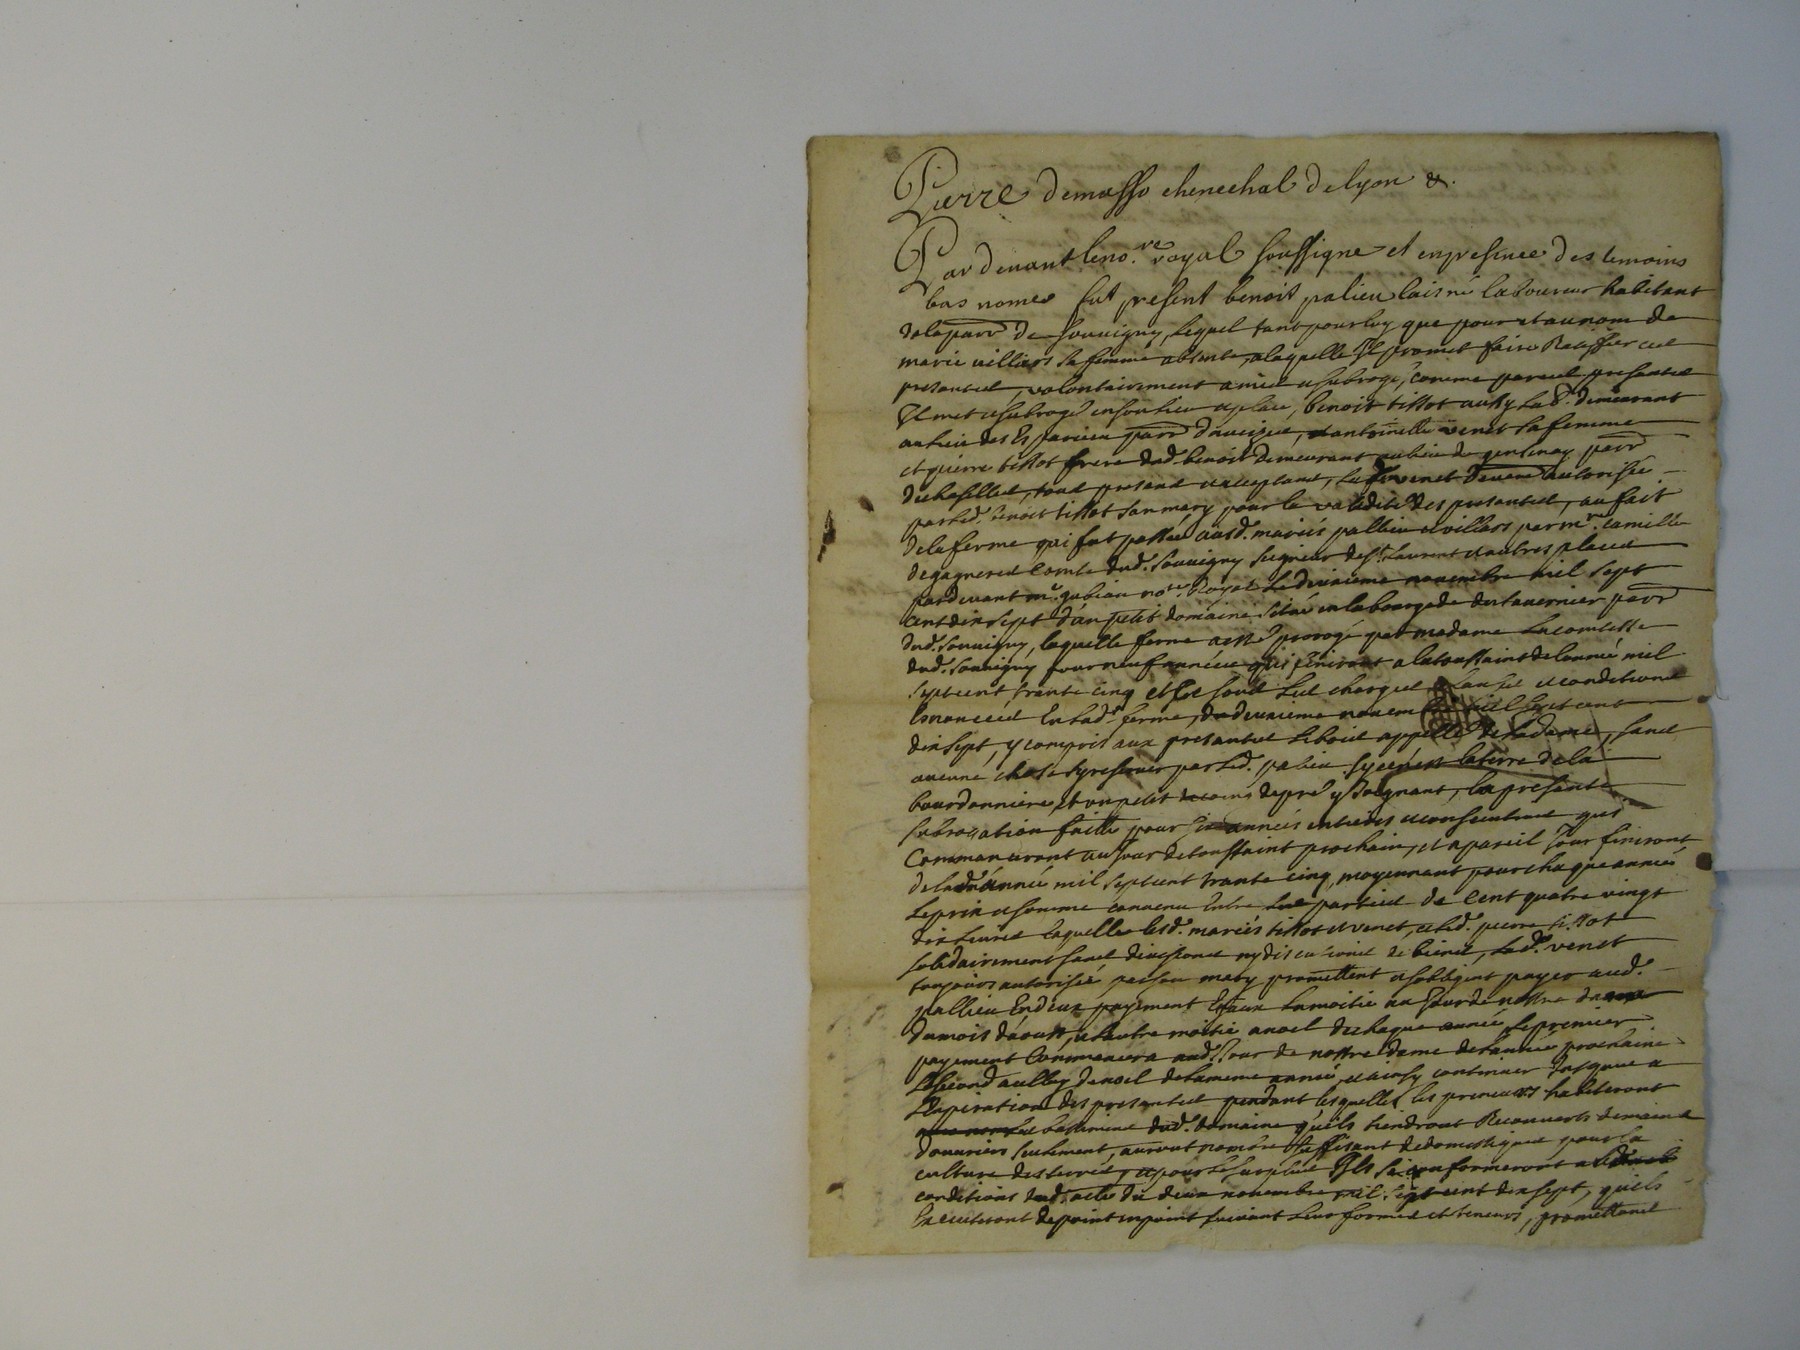 Pierre demasso chenechal delyon &.
Par devant leno.re royal soussigne et enpresence des temoins
bas nomes fut present benoit palieu laisné laboureur habitant
delaparr de souvigny, lequel tant pour luy que pour et aunom de
marie villars sa femme absente, alaquelle Il promet faire Ratiffier ces
presantes, volontairement a mis et subrogé, comme par ces presantes
Il met et subroge ensonlieu et place, benoit tissot aussy lab.r demeurant
aulieu des parr daveize, et antoinette venet sa femme
et pierre tissot frere dud. benoit demeurant aulieu de parr
tous presans et acceptans, lad. venet autorisée
parled. benoit tissot son mary pour la validité des presantes, au fait
delaferme qui fut passée ausd. mariés pallieu et villars par mre. camille
degagneres Comte dud. Souvigny seigneur de st. Laurent et autres places
pardevant me. gubian nore. Royal le deuxieme novembre mil sept
cent dix sept d'un petit domaine situé en labourgade des tavernier parr
dud. Souvigny, laquelle ferme a esté prorogé par madame La comtesse
dud. Souvigny pour neuf années qui finiront a latoussaint delannée mil
sept cent trante cinq et ce sous les charges clauses et conditions
Enoncées En lad. ferme, du deuxieme novembre mil sept cent
dix sept, y compris aux presantes le bois appellé deladame, sans
aucune chose reserver parled. palieu, si ce n'est laterre dela
bourdonniere, et un petit coins depré y Joignant, la presante
subrogation faitte pour six années entieres et consecutives qui
Commanceront au jour detoussaint prochain, et apareil Jour finiront
delad. année mil sept cent trante cinq, moyennant pour chaque année
Leprix et somme convenu Entre les parties de Cent quatre vingt
dix livres laquelle lesd. mariés tissot et venet, et led. pierre tissot
solidairement sans division ny discution de biens, lad. venet
toujours autorisée par son mary promettent et sobligent payer aud.
pallieu En deux payement Egaux lamoitié au Jour de nostre dame
dumois d'aoust, et lautre moitié anoel de chaque année, le premier
payement Commancera aud. Jour de nostre dame delannée prochaine
Lesecond acelluy denoel delameme année, et ainsy continuer Jusques a
Lexpiration des presantes pendant lesquelles les preneurs habiteront
les batiments dud. domaine quils tiendront Recouverts demains
d'ouvriers seulement, auront nombre suffisant dedomestiques pour la
culture des terres, et pour le surplus Ils se conformeront aux
conditions dud. acte du deux novembre mil sept cent dix sept, quils
Executeront depoint enpoint suivant leur forme et teneurs, promettans